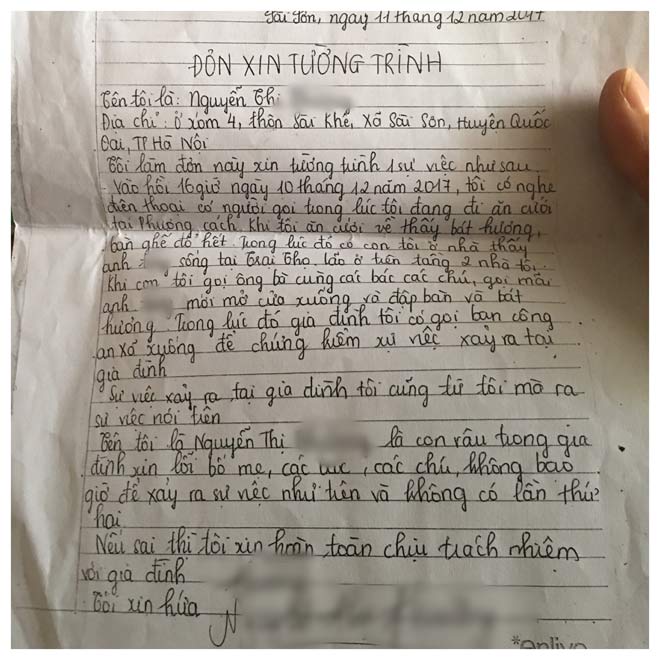 Sài Sơn, ngày 11 tháng 12 năm 2017
ĐƠN XIN TƯỜNG TRÌNH
Tên tôi là: Nguyễn Thị
Địa chỉ: ở xóm 4, thôn Sài Khê, Xã Sài Sơn, Huyện Quốc
Oai, TP Hà Nội
Tôi làm đơn này xin tường trình 1 sự việc như sau
- Vào hồi 16 giờ ngày 10 tháng 12 năm 2017, tôi có nghe
điện thoại có người gọi trong lúc tôi đang đi ăn cưới
tại Phượng cách. Khi tôi ăn cưới về thấy bát hương,
bàn ghế đổ hết trong lúc đó có con tôi ở nhà thấy
anh sống tại Trại Thọ. lão ở trên tầng 2 nhà tô.
Khi con tôi gọi ông bà cùng các bác các chú, gọi mãi
anh mới mở cửa xuống và đập bàn và bát
hương. Trong lúc đó gia đình tôi có gọi ban công
an xã xuống để chứng kiếm sự việc xảy ra tại
gia đình
Sự việc xảy ra tại gia đình tôi cũng từ tôi mà ra
sự việc nói trên
Tên tôi là Nguyễn Thị là con râu trong gia
đình xin lỗi bố mẹ, các các chú, không bao
giờ để xảy ra sự việc như trên và không có lần thứ
hai
Nếu sai thì tôi xin hoàn toàn chịu trách nhiệm
với gia đình
Tôi xin hứa
N